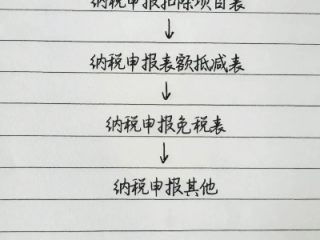 纳税申报扣除项目表
↓
纳税申报表额抵减表
↓
纳税申报免税表
↓
纳税申报其他